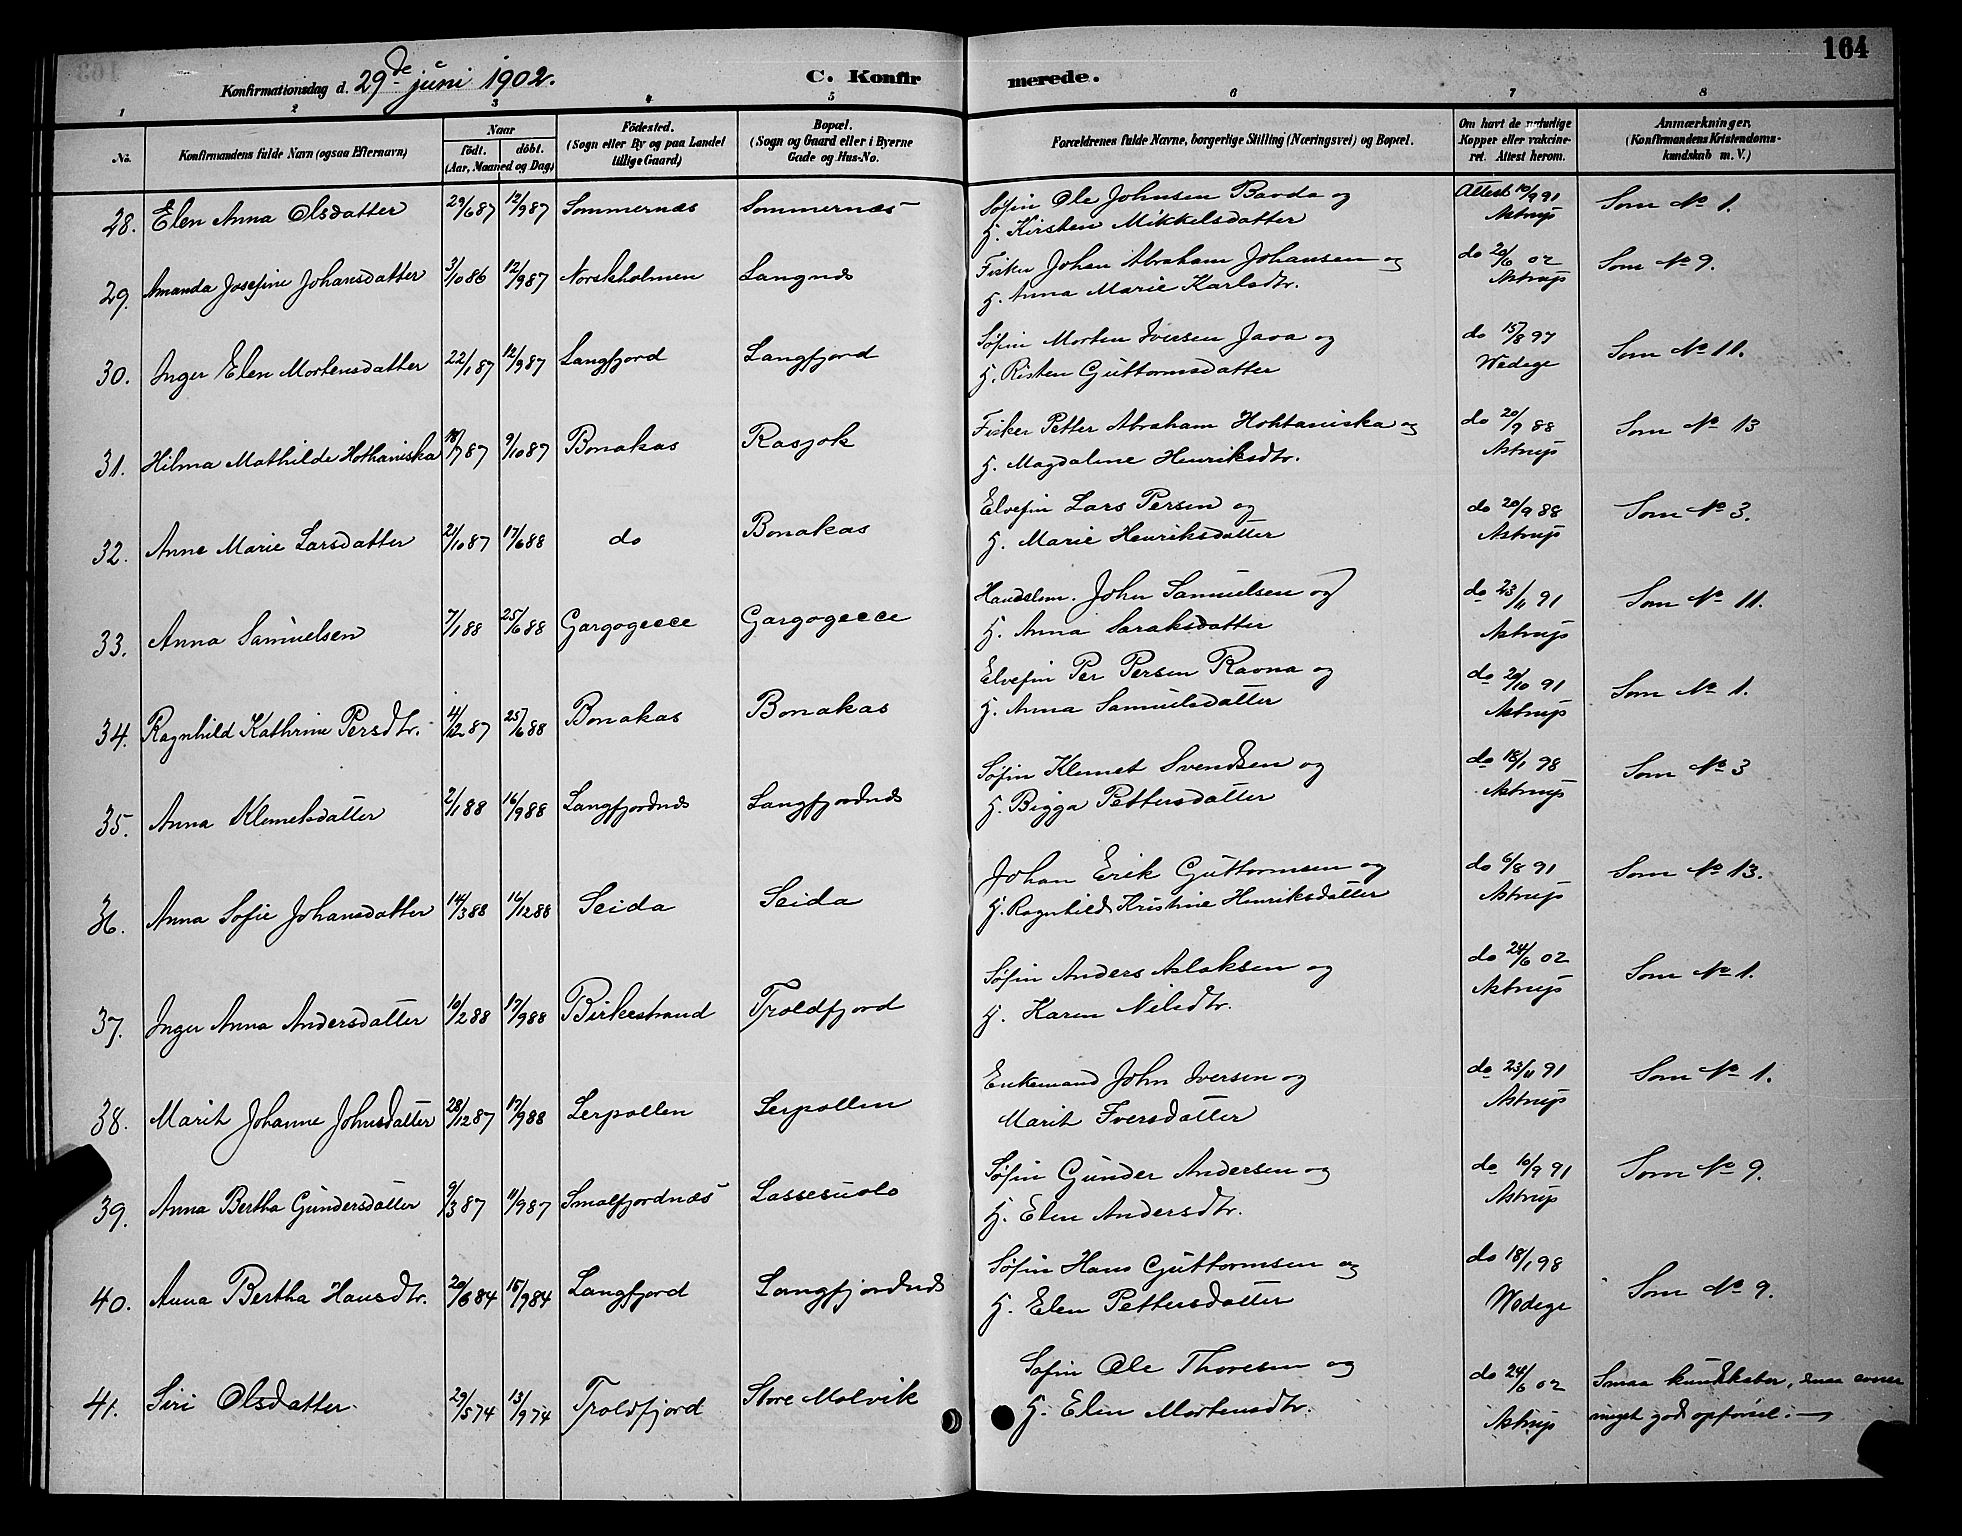 164
Konfirmationsdag d. 29de juni 1902. C. Konfirmerede.
1 2 3 4 5 6 7 8
No. Konfirmandens fulde Navn (ogsaa Efternavn) Naar födt. döbt. (Aar, Maaned og Dag) Födested. (Sogn eller By og paa Landet tillige Gaard) Bopæl. (Sogn og Gaard eller i Byerne Gade og Hus-No. Forældrenes fulde Navne, borgerlige Stilling (Næringsvei) og Bopæl. Om havt de naturlige Kopper eller vakcineret. Attest herom. Anmærkninger. (Konfirmandens Kristendomskundskab m. V.)
28. Elen Anna Olsdatter 29/6 87 12/9 87 Sommernæs Sommernæs Søfin Ole Johnsen Bavda og Attest 10/9 91 Som No 1.
H. Kirsten Mikkelsdatter Astrup
29. Amanda Josefine Johansdatter 3/10 86 12/9 87 Norskholmen Langnæs Fisker Johan Abraham Johansen og do 20/6 02 Som No 9.
H. Anna Marie Karlsdtr. Astrup
30. Inger Elen Mortensdatter 22/1 87 12/9 87 Langfjord Langfjord Søfin Morten Iversen Java og do 15/8 97 Som No 11.
H. Risten Guttormsdatter Wedege
31. Hilma Mathilde Hothaniska 18/7 87 9/10 87 Bonakas Rasjok Fisker Petter Abraham Hohtaniska og do 20/9 88 Som No 13
H. Magdalene Henriksdtr. Astrup
32. Anne Marie Larsdatter 2/10 87 17/6 88 do Bonakas Elvefin Lars Persen og do 20/9 88 Som No 3.
H. Marie Henriksdatter Astrup
33. Anna Samuelsen 7/1 88 25/6 88 Gargogecce Gargogecce Handelsm. John Samuelsen og do 23/11 91 Som No 11.
H. Anna Saraksdatter Astrup
34. Ragnhild Kathrine Persdtr. 11/12 87 25/6 88 Bonakas Bonakas Elvefin Per Persen Ravna og do 20/10 91 Som No 1.
H. Anna Samuelsdatter Astrup
35. Anna Klemetsdatter 2/1 88 16/9 88 Langfjordnæs Langfjordnæs Søfin Klemet Svendsen og do 18/1 98 Som No 3
H. Bigga Pettersdatter Astrup
36. Anna Sofie Johansdatter 14/3 88 16/12 88 Seida Seida Johan Erik Guttormsen og do 6/8 91 Som No 13.
H. Ragnhild Kristine Henriksdatter Astrup
37. Inger Anna Andersdatter 10/2 88 17/9 88 Birkestrand Troldfjord Søfin Anders Aslaksen og do 24/6 02 Som No 1.
H. Karen Nilsdtr. Astrup
38. Marit Johanne Johnsdatter 28/12 87 17/9 88 Lerpollen Lerpollen Enkemand John Iversen og do 23/11 91 Som No 1.
Marit Iversdatter Astrup
39. Anna Bertha Gundersdatter 9/3 87 11/9 87 Smalfjordnæs Lassesuolo Søfin Gunder Andersen og do 10/9 91 Som No 9.
H. Elen Andersdtr. Astrup
40. Anna Bertha Hansdtr. 20/6 84 15/9 84 Langfjord Langfjordnæs Søfin Hans Guttormsen og do 18/1 98 Som No 9.
H. Elen Pettersdatter Wedege
41. Siri Olsdatter 29/5 74 13/9 74 Troldfjord Store Molvik Søfin Ole Thoresen og do 24/6 02 Smaa kundskaber, smaa evner
H. Elen Mortensdtr. Astrup meget god opførsel.